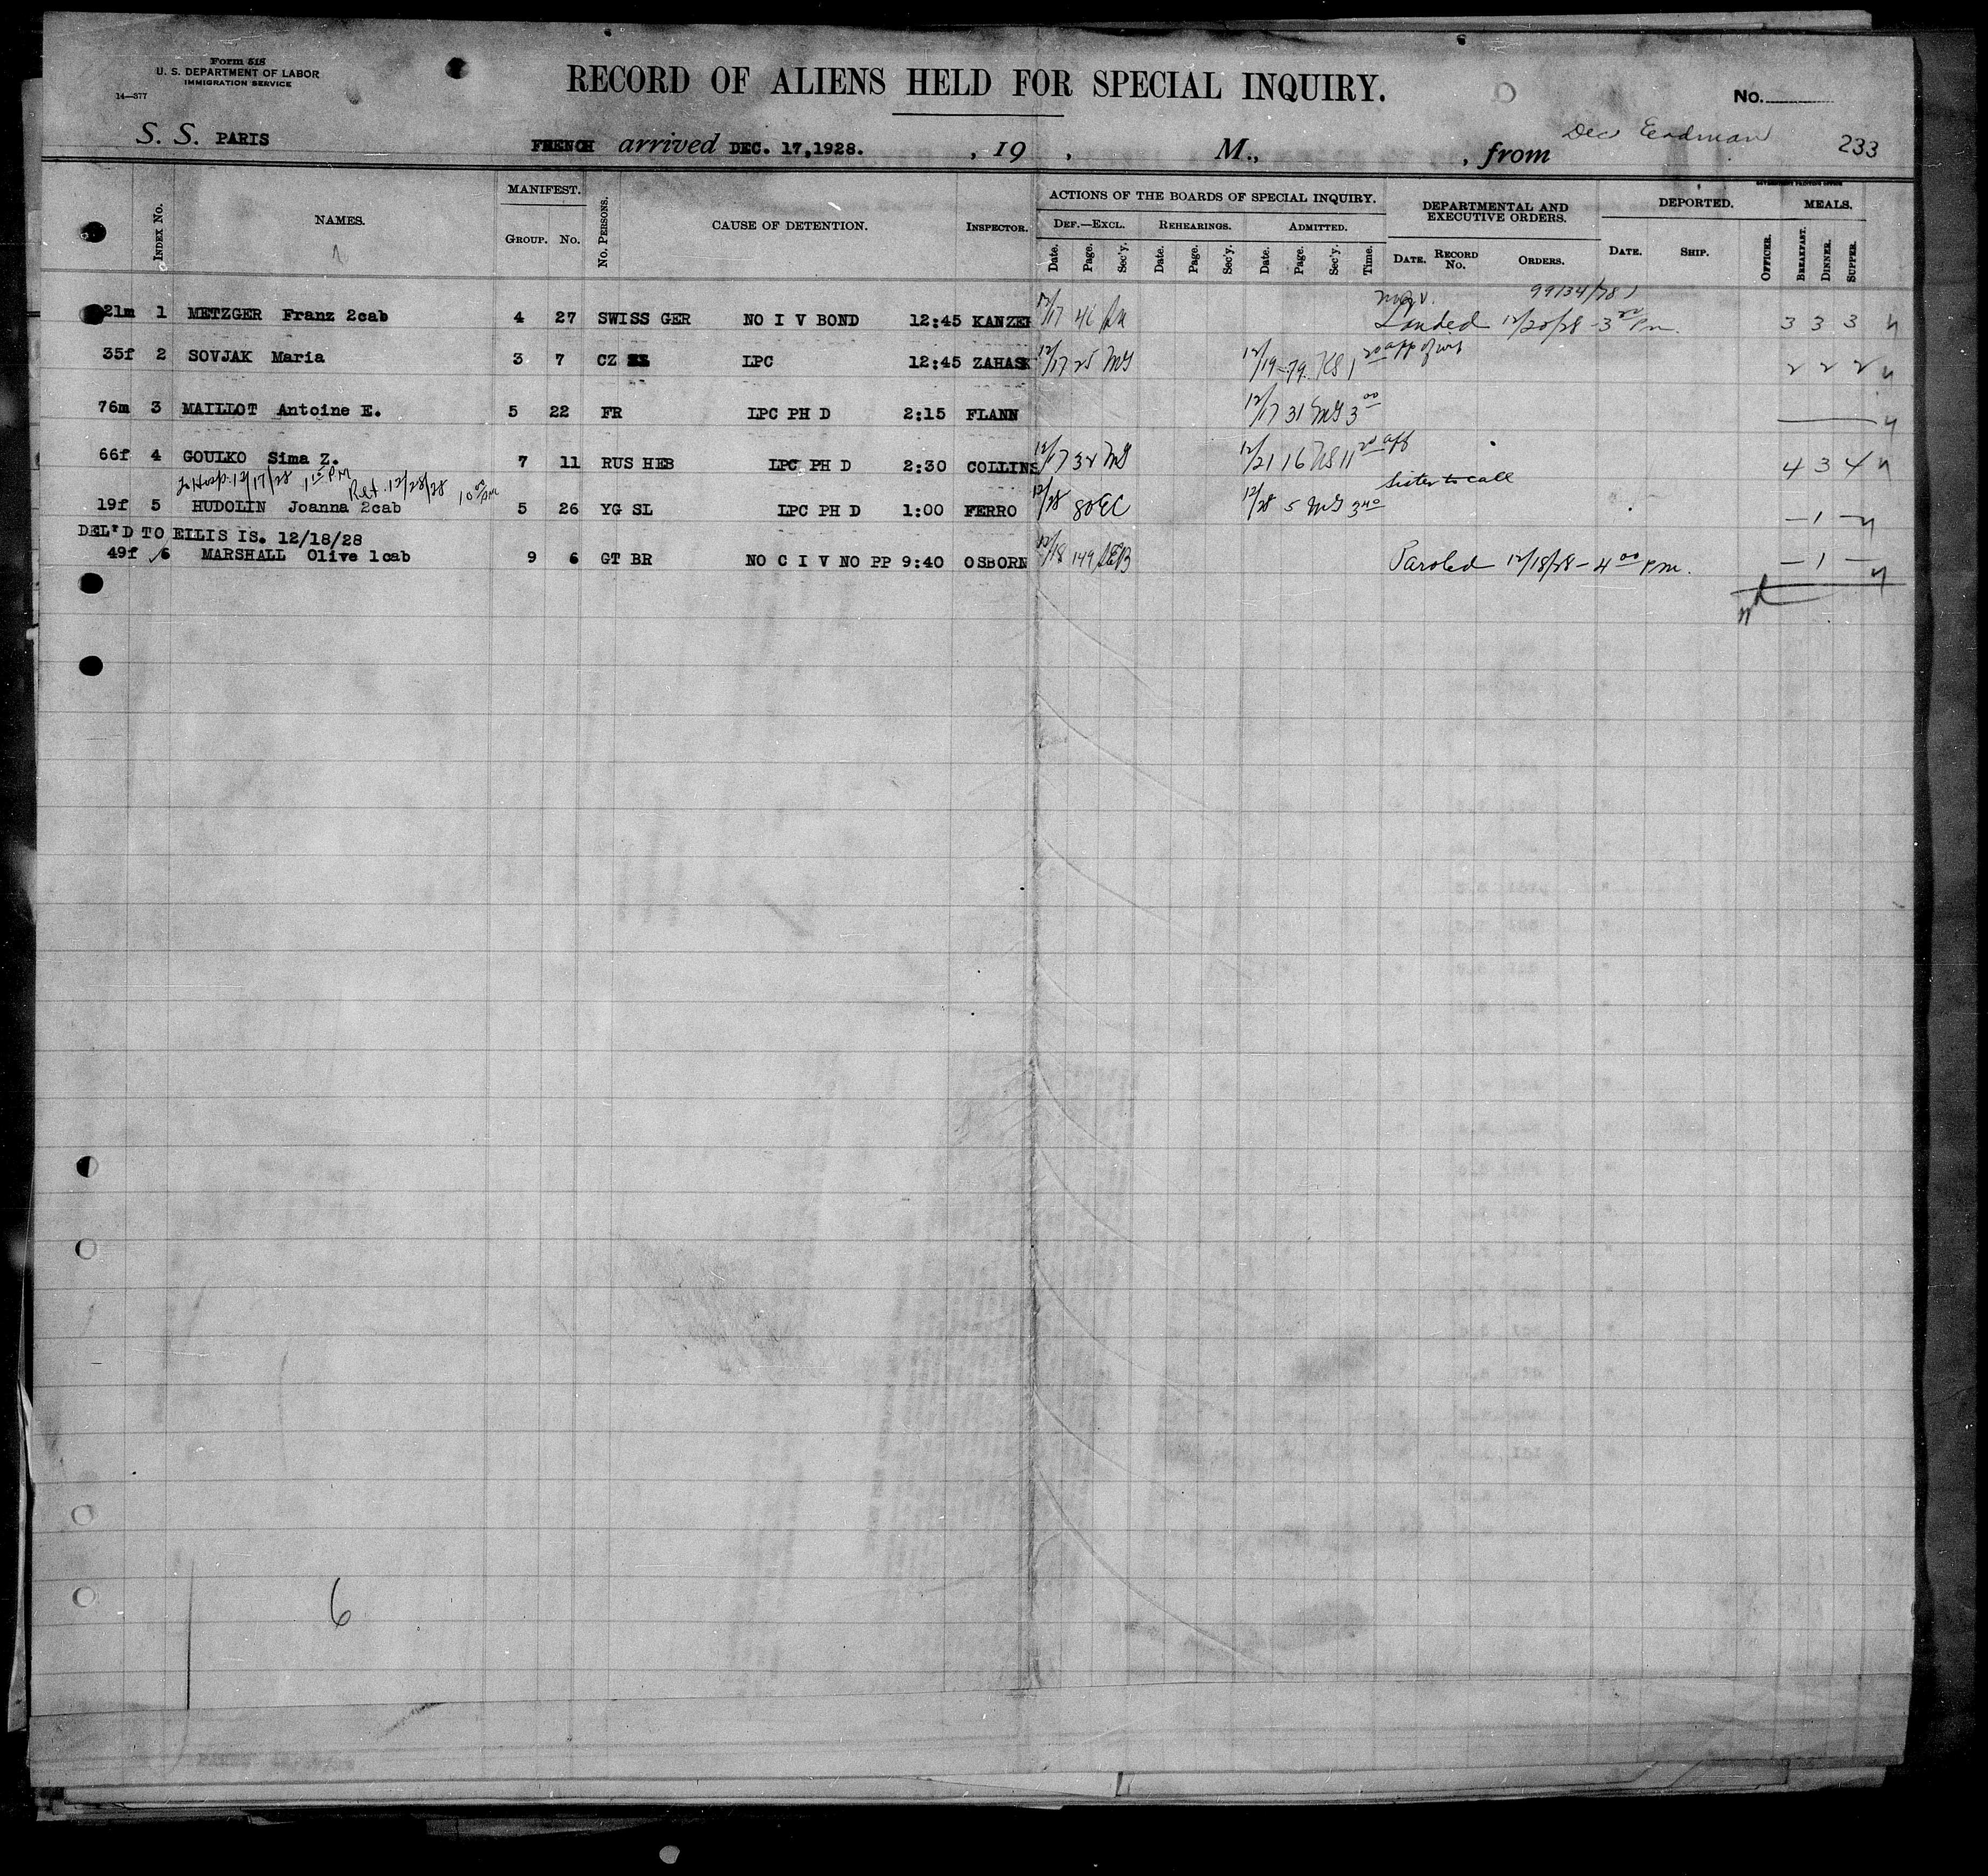 Form 518
U. S. DEPARTMENT OF LABOR
IMMIGRATION SERVICE
14—577
RECORD OF ALIENS HELD FOR SPECIAL INQUIRY.
No.
S. S. PARIS FRENCH arrived DEC. 17,1928. , 19 , M., , from Dec 233
GOVERNMENT PRINTING OFFICE
INDEX No. NAMES. MANIFEST. GROUP. No. No. PERSONS. CAUSE OF DETENTION. INSPECTOR.
ACTIONS OF THE BOARDS OF SPECIAL INQUIRY.
DEF.—EXCL. Date. Page. Sec'y. REHEARINGS. Date. Page. Sec'y. ADMITTED. Date. Page. Sec'y. Time.
DEPARTMENTAL AND EXECUTIVE ORDERS. DATE. RECORD No. ORDERS.
DEPORTED. DATE. SHIP. OFFICER.
MEALS. BREAKFAST. DINNER. SUPPER.
99134/781
21m 1 METZGER Franz 2cab 4 27 SWISS GER NO I V BOND 12:45 KANZER 12/17 46 Landed 12/20/28 - 3 Pm. 3 3 3
35f 2 SOVJAK Maria 3 7 CZ LPC 12:45 ZAHASK 12/17 25 MG 12/19 79 KS 1 20 2 2 2
76m 3 MAILLOT Antoine E. 5 22 FR LPC PH D 2:15 FLANN 12/17 31 MG 3 00
66f 4 GOULKO Sima Z. 7 11 RUS HEB LPC PH D 2:30 COLLINS 12/17 32 MG 12/21 16 KS 11 20 aff 4 3 4
To Hosp. 12/17/28 1 15 PM Ret. 12/28/28 10 00 AM
sister to call
19f 5 HUDOLIN Joanna 2cab 5 26 YG SL LPC PH D 1:00 FERRO 12/28 80 EC 12/28 5 MG 3 40 — 1 —
DEL'D TO ELLIS IS. 12/18/28
49f 6 MARSHALL Olive 1cab 9 6 GT BR NO C I V NO PP 9:40 OSBORN 12/18 149 Paroled 12/18/28 - 4 00 Pm. — 1 —
6